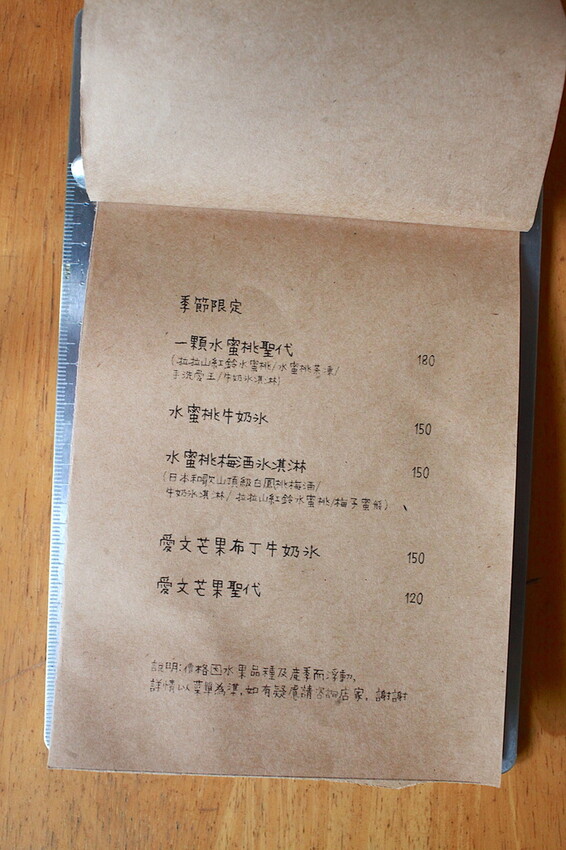 季節限定
一顆水蜜桃聖代 180
(拉拉山紅鈴水蜜桃/水蜜桃茶凍/
手洗愛玉/牛奶冰淇淋)
水蜜桃牛奶冰 150
水蜜桃梅酒冰淇淋 150
(日本和歌山頂級白鳳桃梅酒/
牛奶冰淇淋/拉拉山紅鈴水蜜桃/梅子蜜餞)
愛文芒果布丁牛奶冰 150
愛文芒果聖代 120
說明:價格因水果品種及產季而浮動,
詳情以菜單為準,如有疑慮請咨詢店家, 謝謝